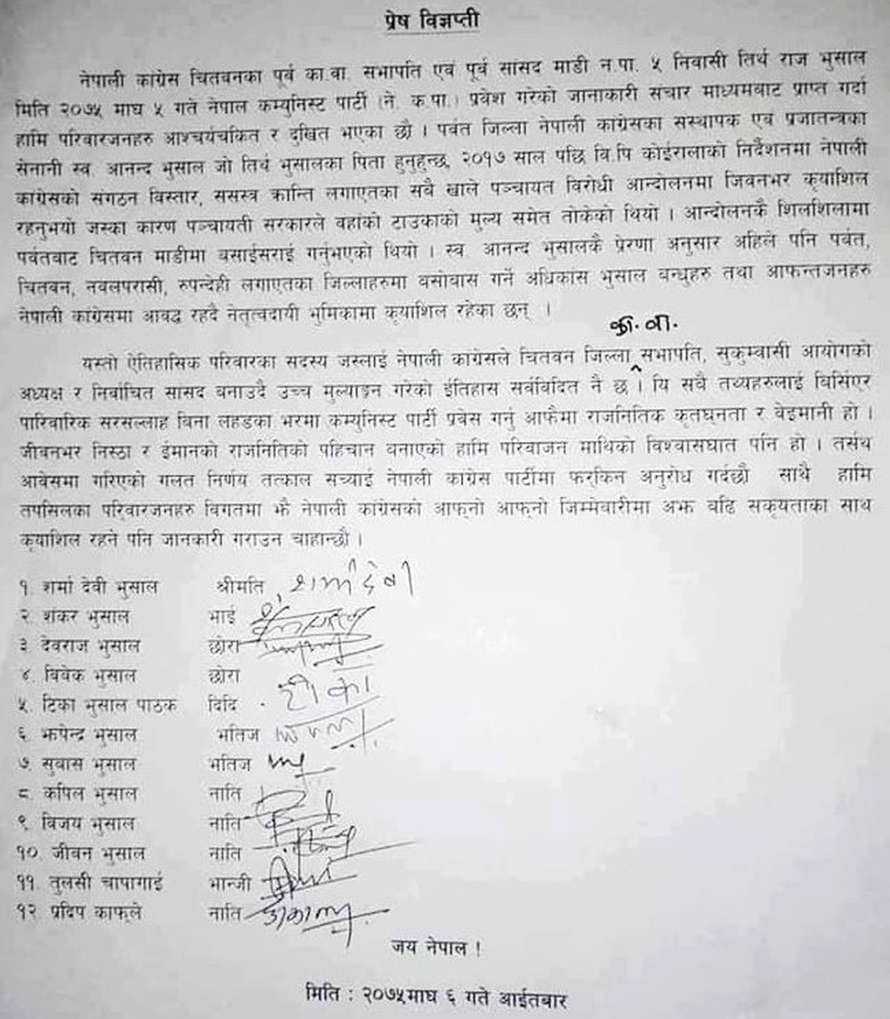 प्रेष विज्ञप्ती
नेपाली कांग्रेस चितवनका पूर्व का.वा. सभापति एवं पूर्व सांसद माडी न.पा. ५ निवासी तिर्थ राज भुसाल
मिति २०७५ माघ ५ गते नेपाल कम्युनिस्ट पार्टी (ने. क.पा.) प्रवेश गरेको जानाकारी संचार माध्यमबाट प्राप्त गर्दा
हामि परिवारजनहरु आश्चर्यचकित र दुखित भएका छौ । पर्वत जिल्ला नेपाली कांग्रेसका संस्थापक एवं प्रजातन्त्रका
सेनानी स्व. आनन्द भुसाल जो तिर्थ भुसालका पिता हुनुहुन्छ, २०१७ साल पछि बि.पि कोईरालाको निर्देशनमा नेपाली
कांग्रेसको संगठन विस्तार, ससस्त्र क्रान्ति लगाएतका सबै खाले पञ्चायत विरोधी आन्दोलनमा जिवनभर कृयाशिल
रहनुभयो जस्का कारण पञ्चायती सरकारले वहांको टाउकाको मुल्य समेत तोकेको थियो । आन्दोलनकै शिलशिलामा
पर्वतबाट चितवन माडीमा बसाईसराई गर्नुभएको थियो । स्व. आनन्द भुसालकै प्रेरणा अनुसार अहिले पनि पर्वत,
चितवन, नवलपरासी, रुपन्देही लगाएतका जिल्लाहरुमा बसोबास गर्ने अधिकांस भुसाल बन्धुहरु तथा आफन्तजनहरु
नेपाली कांग्रेसमा आवद्ध रहदै नेतृत्वदायी भुमिकामा कृयाशिल रहेका छन् ।
का. वा.
यस्तो ऐतिहासिक परिवारका सदस्य जस्लाई नेपाली कांग्रेसले चितवन जिल्ला सभापति, सुकुम्वासी आयोगको
अध्यक्ष र निर्वाचित सांसद बनाउदै उच्च मुल्याङ्कन गरेको ईतिहास सर्वविदित नै छ । यि सबै तथ्यहरुलाई बिर्सिएर
पारिवारिक सरसल्लाह बिना लहडका भरमा कम्युनिस्ट पार्टी प्रवेस गर्नु आफैमा राजनितिक कृतघ्नता र वेइमानी हो ।
जीवनभर निस्ठा र ईमानको राजनितिको पहिचान बनाएको हामि परिवाजन माथिको विश्वासघात पनि हो । तर्सथ
आवेसमा गरिएको गलत निर्णय तत्काल सच्याई नेपाली कांग्रेस पार्टीमा फर्किन अनुरोध गर्दछौ साथै हामि
तपसिलका परिवारजनहरु विगतमा झै नेपाली कांग्रेसको आफ्नो आफ्नो जिम्मेवारीमा अझ बढि सकृयताका साथ
कृयाशिल रहने पनि जानकारी गराउन चाहान्छौ ।
१. शर्मा देवी भुसाल श्रीमति शर्मा देवी
२. शंकर भुसाल भाई
३. देवराज भुसाल छोरा
४. बिवेक भुसाल छोरा
५. टिका भुसाल पाठक दिदि टीका
६. झपेन्द्र भुसाल भतिज
७. सुवास भुसाल भतिज
८. कपिल भुसाल नाति
९. विजय भुसाल नाति
१०. जीवन भुसाल नाति
११. तुलसी चापागाई भान्जी
१२. प्रदिप काफ्ले नाति
जय नेपाल !
मिति : २०७५माघ ६ गते आईतबार